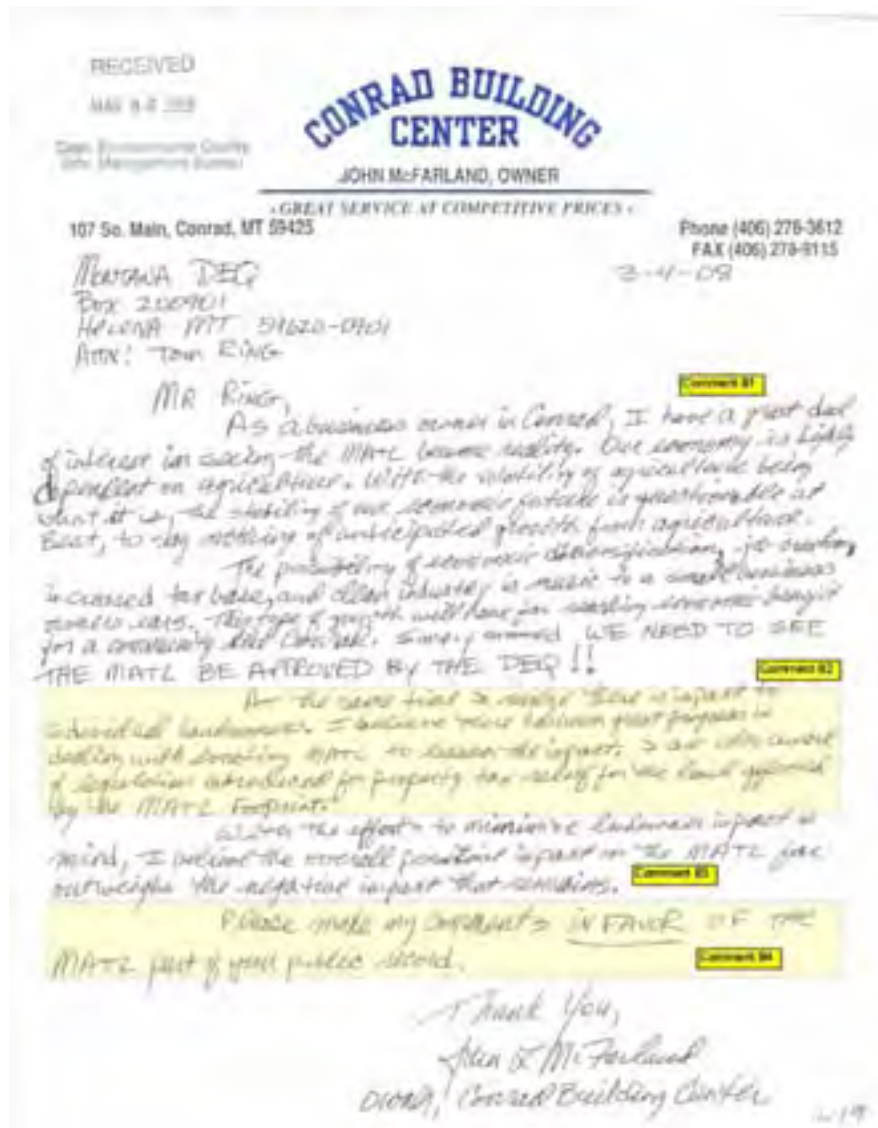 RECEIVED
CONRAD BUILDING
CENTER
JOHN McFARLAND, OWNER
GREAT SERVICE AT COMPETITIVE PRICES
107 So. Main, Conrad, MT 59425
Phone (406) 278-3612
FAX (406) 278-9115
MONTANA DEQ
3-4-08
Box 200901
HELENA MT 59620-0901
ATTN: Tom RING
MR RING,
Comment #1
As a business owner in Conrad, I have a great deal
of interest in seeing the MATL become reality. Our economy is highly
dependent on agriculture. With the volatility of agriculture being
what it is, the stability of our economic future is questionable at
Best, to say nothing of anticipated growth from agriculture.
The possibility of economic diversification, job creation,
increased tax base, and clean industry is music to a small business
owners ears. This type of growth will have far reaching economic benefit
for a community like Conrad. Simply WE NEED TO SEE
THE MATL BE APPROVED BY THE DEQ !!
Comment #2
At the same time I realize there is impact to
individual landowners. I believe there has been great progress in
dealing with MATL to lessen the impact. I am also aware
of legislation introduced for property tax relief for the land affected
by the MATL Footprint.
With the efforts to minimize landowner impact in
mind, I believe the overall positive impact on the MATL far
outweighs the negative impact that remains.
Comment #3
Please make my comments IN FAVOR OF THE
MATL part of your public record.
Comment #4
Thank You,
John L McFarland
Owner, Conrad Building Center